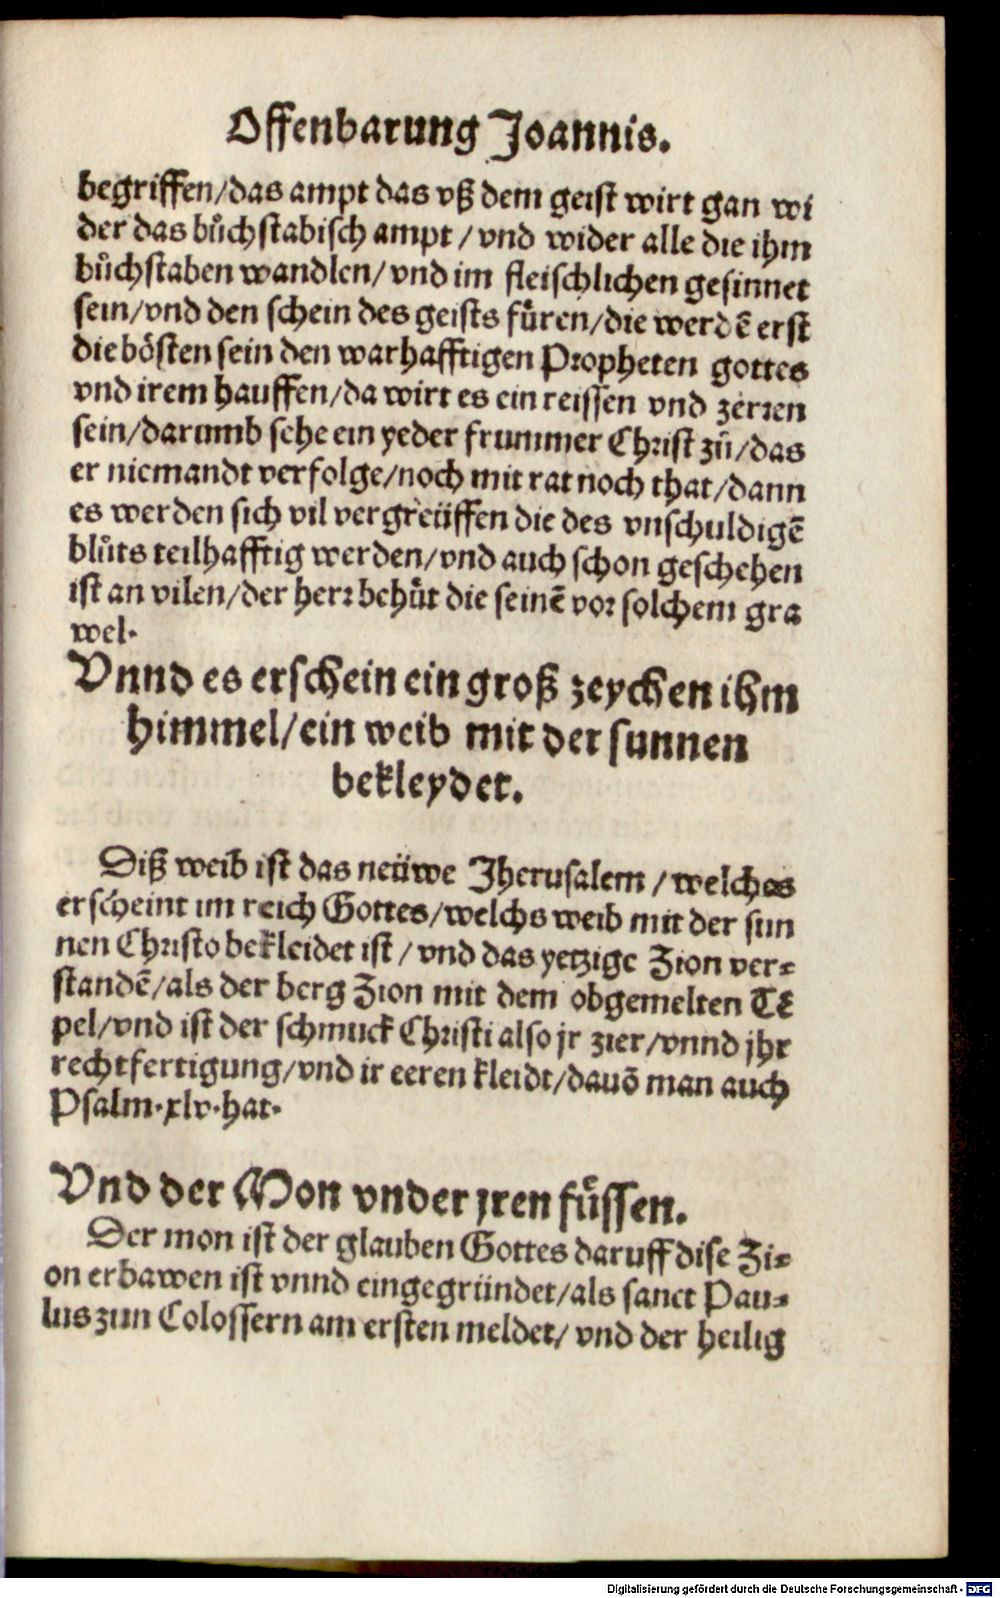 Offenbarung Joannis.
begriffen/das ampt das vß dem geist wirt gan wi
der das bůchstabisch ampt / vnd wider alle die ihm
bůchstaben wandlen/ vnd im fleischlichen gesinnet
sein/vnd den schein des geists fůren/die werdẽ erst
die bösten sein den warhafftigen Propheten gottes
vnd irem hauffen/da wirt es ein reissen vnd zerren
sein/darumb sehe ein yeder frummer Christ zů/das
er niemandt verfolge/noch mit rat noch that/dann
es werden sich vil vergreüffen die des vnschuldigẽ
blůts teilhafftig werden/vnd auch schon geschehen
ist an vilen/der herr behůt die seinẽ vor solchem gra
wel.
Vnnd es erschein ein groß zeychen ihm
himmel/ein weib mit der sunnen
bekleydet.
Diß weib ist das neüwe Jherusalem / welches
erscheint im reich Gottes/welchs weib mit der sun
nen Christo bekleidet ist / vnd das yetzige Zion ver⸗
standẽ/als der berg Zion mit dem obgemelten Tẽ
pel/vnd ist der schmuck Christi also jr zier/vnnd jhr
rechtfertigung/vnd ir eeren kleidt/dauõ man auch
Psalm.xlv.hat.
Vnd der Mon vnder jren fůssen.
Der mon ist der glauben Gottes daruff dise Zi⸗
on erbawen ist vnnd eingegründet/als sanct Pau⸗
lus zun Colossern am ersten meldet/ vnd der heilig
Digitalisierung gefördert durch die Deutsche Forschungsgemeinschaft - DFG